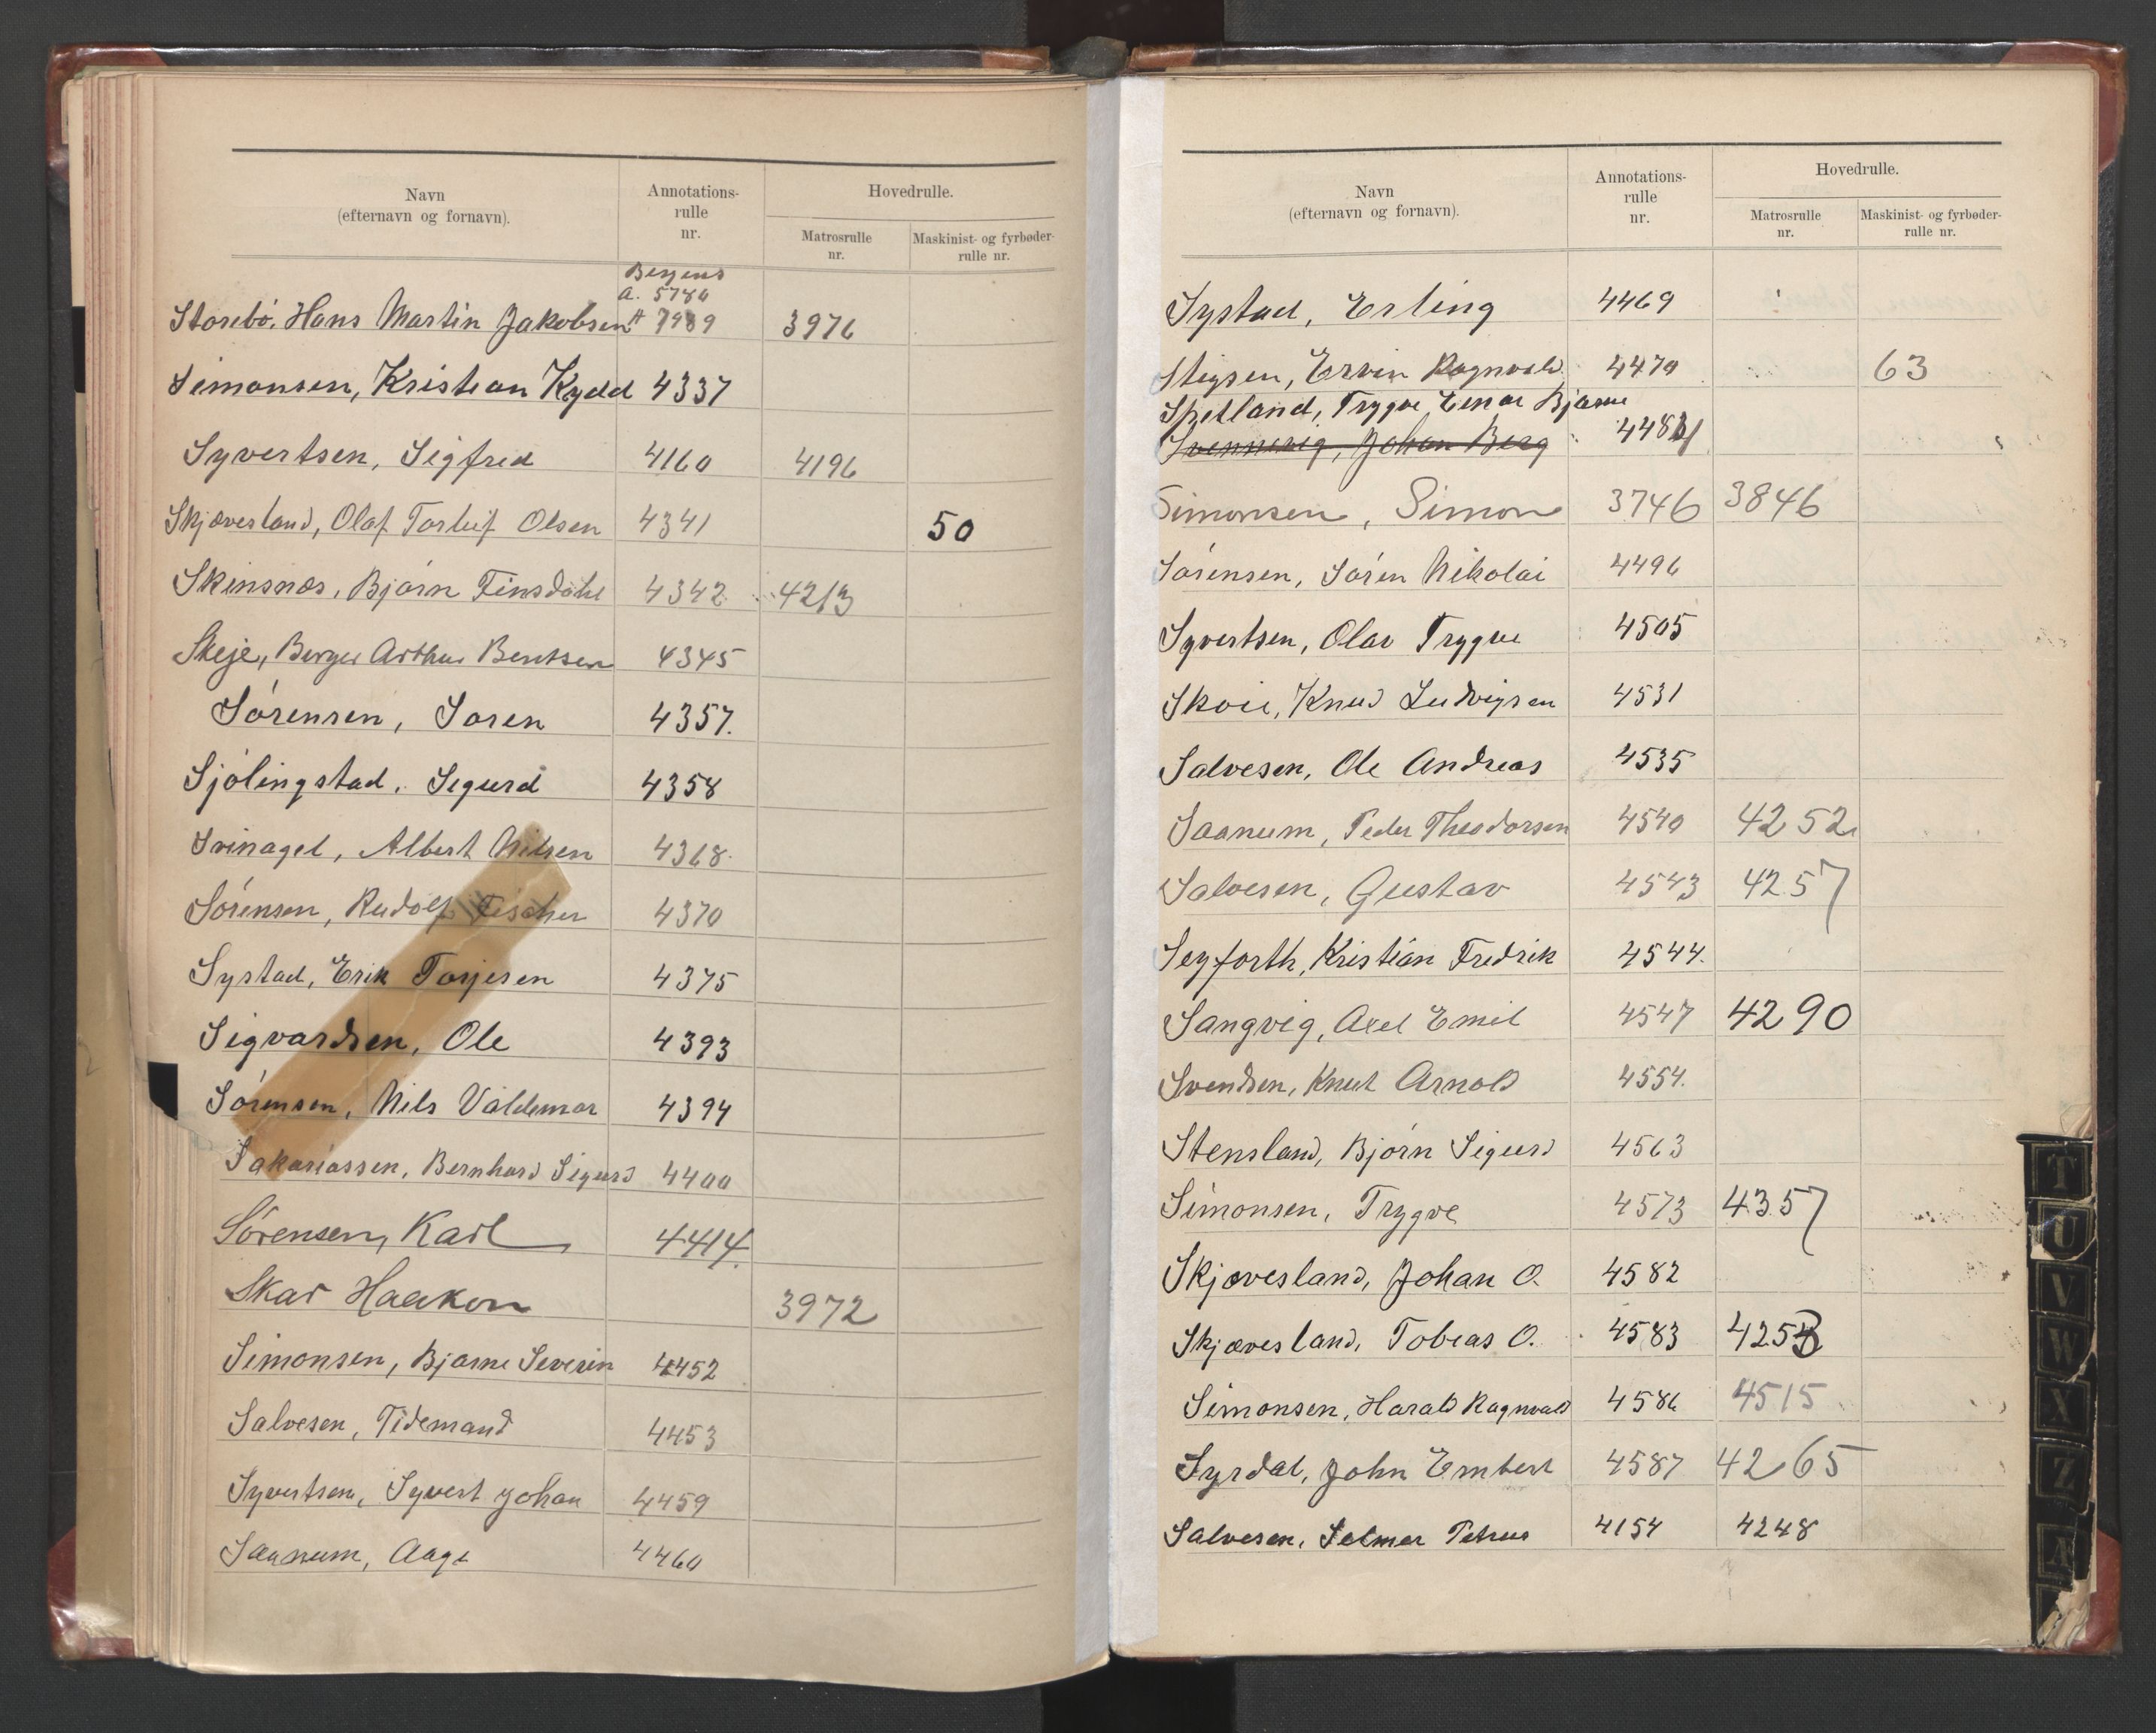 Navn
(efternavn og fornavn).
Annotations-
rulle
nr.
Hovedrulle.
Matrosrulle
nr.
Maskinist- og fyrbøder-
rulle nr.
Bergens
a. 5780
Storebö, Hans Martin Jakobsen A 7989 3976
Simonsen, Kristian Kydd 4337
Syvertsen, Sigfred 4160 4196
Skjævesland, Olaf Torleif Olsen 4341 50
Skinsnæs, Bjarn Finsdahl 4342 4213
Skeje, Berger Arthur Bentsen 4345
Sörensen, Soren 4357.
Sjölingstad, Sigurd 4358
Svinagel, Albert Nilsen 4368.
Sörensen, Rudolf Fischer 4370
Systad, Erik Torjesen 4375
Sigvardsen, Ole 4393
Sörensen, Nils Valdemar 4394
Sakariassen, Bernhard Sigurd 4400
Sörensen, Karl 4414.
Skar Haakon 3972
Simonsen, Bjarne Severin 4452
Salvesen, Tidemand 4453
Syvertsen, Syvert Johan 4459
Saanum, Aage 4460
Navn
(efternavn og fornavn).
Annotations-
rulle
nr.
Hovedrulle.
Matrosrulle
nr.
Maskinist- og fyrbøder-
rulle nr.
Systad, Erling 4469
Stigsen, Ervin Ragnvald 4470 63
Spetland, Trygve Einar Bjarne
Svennevig, Johan Berg 448
Simonsen, Simon 3746 3846
Sörensen, Sören Nikolai 4496
Syvertsen, Olav Trygve 4505
Skoie, Knud Ludvigsen 4531
Salvesen, Ole Andreas 4535
Saanum, Peder Theodorsen 4540 4252
Salvesen, Gustav 4543 4257
Seyforth, Kristian Fredrik 4544.
Sangvig, Axel Emil 4547 4290
Svendsen, Knut Arnold 4554.
Stensland, Björn Sigurd 4563
Simonsen, Trygve 4573 4357
Skjævesland, Johan O. 4582
Skjævesland, Tobias O. 4583 4253
Simonsen, Harald Ragnvald 4586 4515
Syrdal, John Embert 4587 4265
Salvesen, Selmer Petrus 4154 4248
T
U
V
W
X
Z